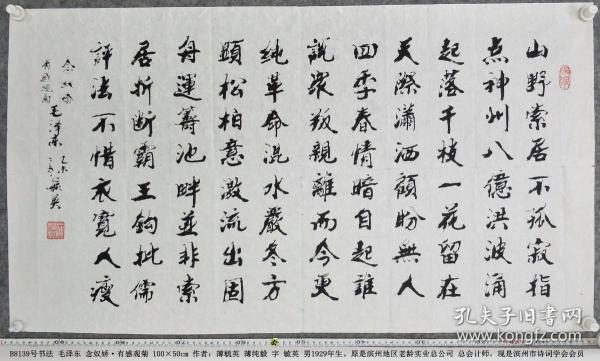 山野索居不孤寂指
点神州八億洪波涌
起落千枝一花留在
天際瀟洒顧盼無人
四季春情暗自起誰
說衆叛親離而今更
纯革命混水嚴冬方
顕松柏意激流出固
舟運籌池畔並非索
居折断霸王鈎批儒
評法不惜衣寬人瘦
念奴嬌
有感观菊
毛泽东
B8139号书法 毛泽东 念奴娇·有感观菊 100×50cm 作者：薄毓英 薄纯毅 字 毓英 男1929年生。原是滨州地区老龄实业总公司 总会计师，现是滨州市诗词学会会员
孔夫子旧书网